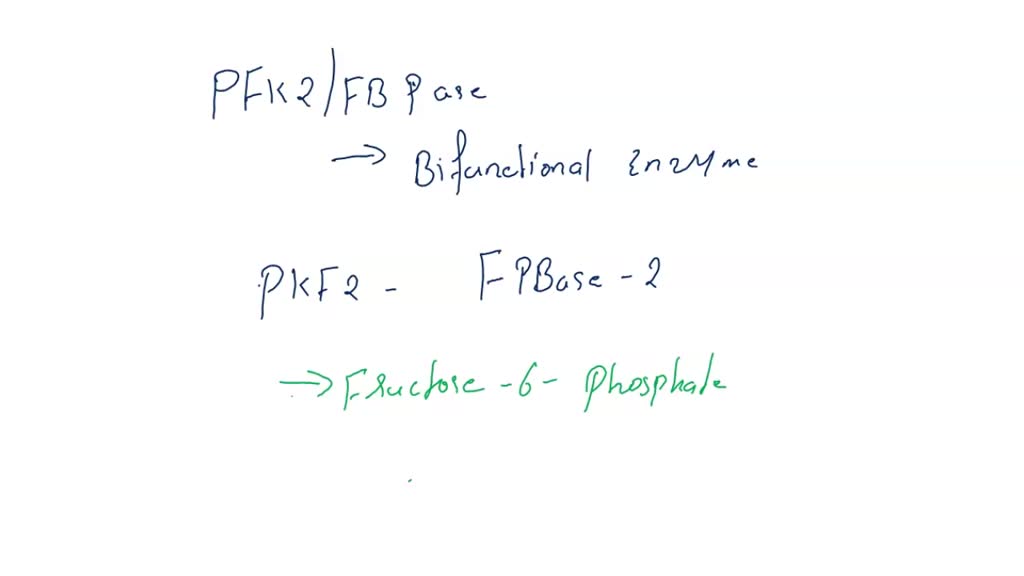 PFK2/FBPase
→ Bifunctional Enzyme
PKF2 - FPBase-2
→ Fructose-6-Phosphate